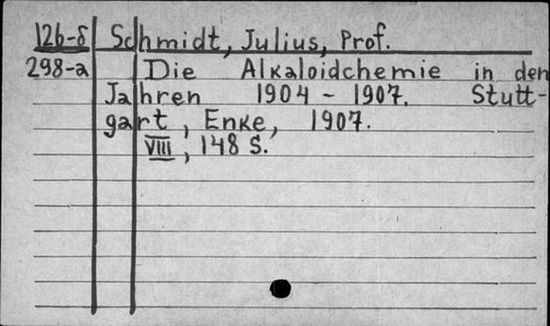 12b-δ Schmidt, Julius, Prof.
298-a Die Alkaloidchemie in den
Jahren 1904 - 1907. Stutt-
gart, Enke, 1907.
VIII, 148 S.